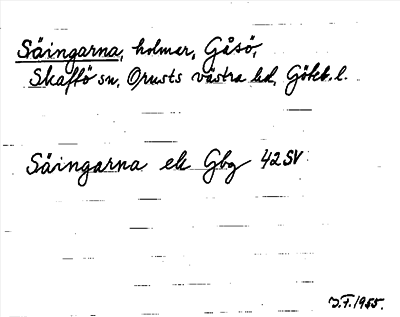 Säingarna, holmar, Gåsö,
Skaftö sn, Orusts västra hd, Göteb. l.
Säingarna ek Gbg 42 SV
J.F. 1955.